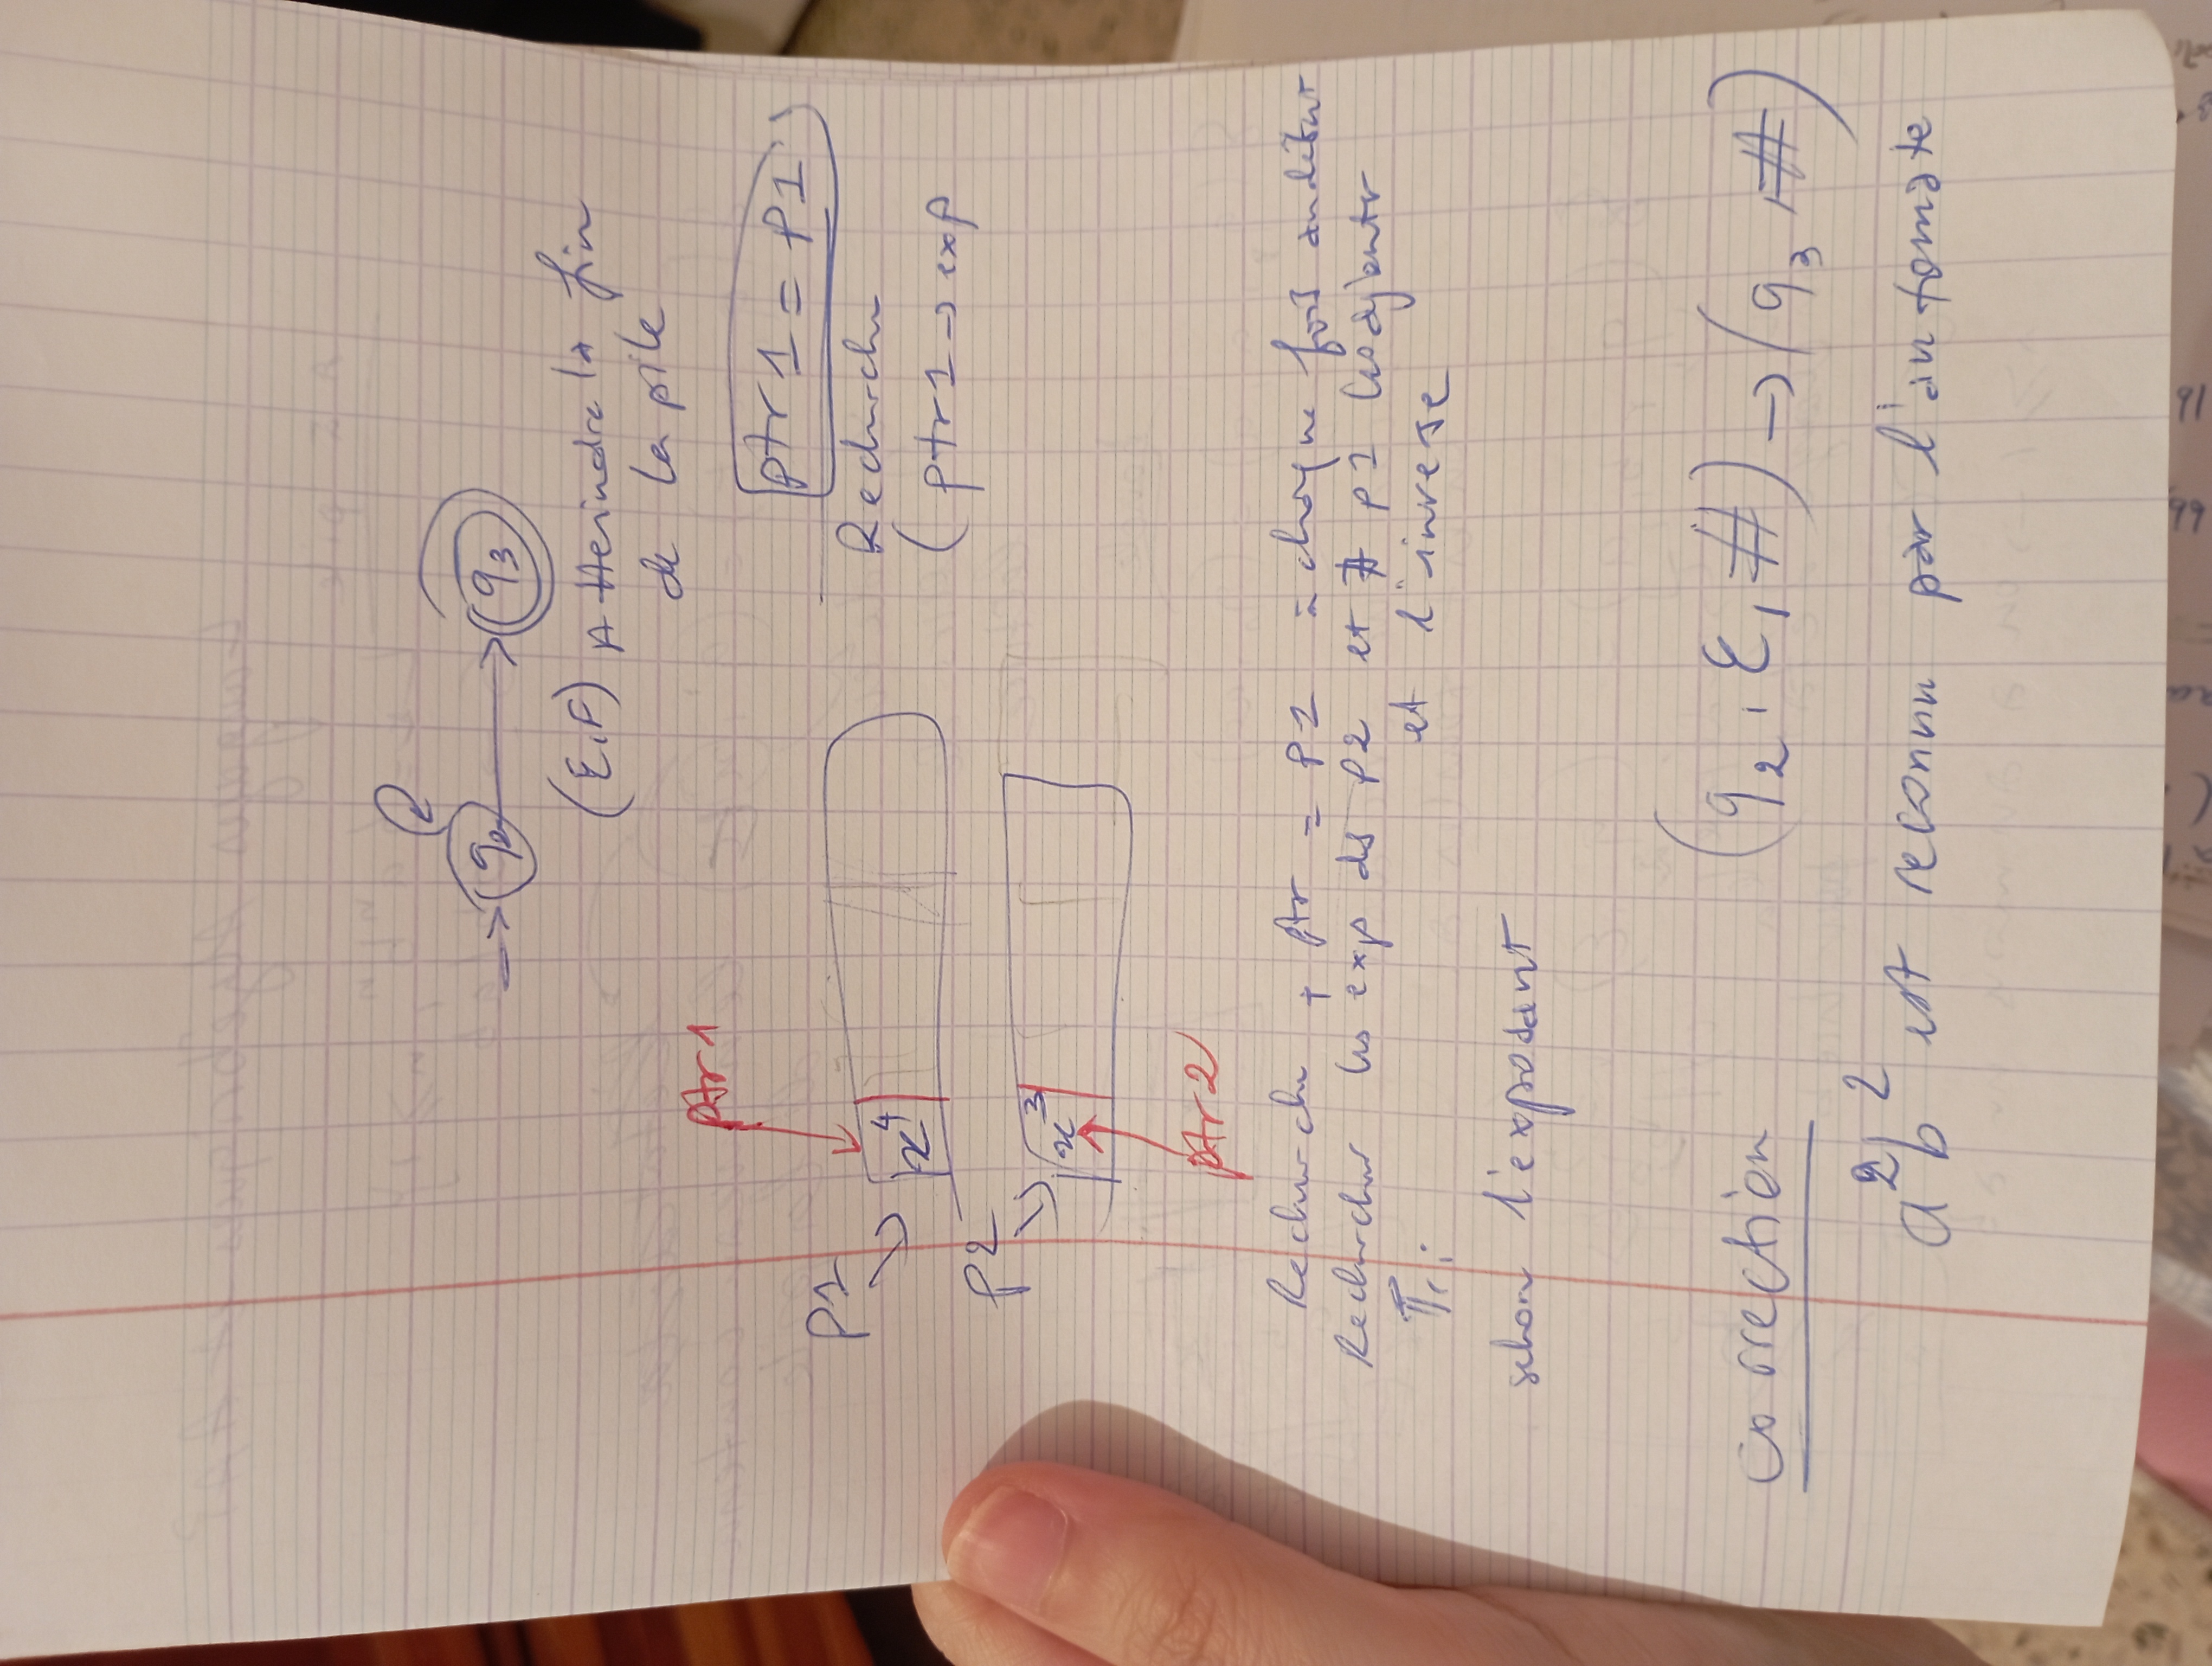 q2
q3
(ε, F) Atteindre la fin
de la pile
ptr1
ptr1 = P1
P1
Recherche
x⁴
(ptr1 → exp
P2
x³
ptr2
Recherche + ptr = P1 = chaque fois
Rechercher les exp ds P2 et ∄ P1
et l'inverse
Tri
selon l'exposant
correction
(q2, ε, #) → (q3, #)
a²b² est reconnu par l'automate